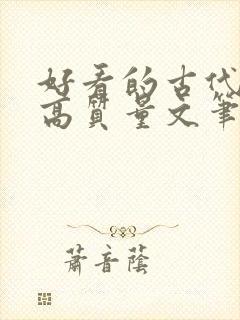 好看的古代
高質量文筆
蕭音蔭